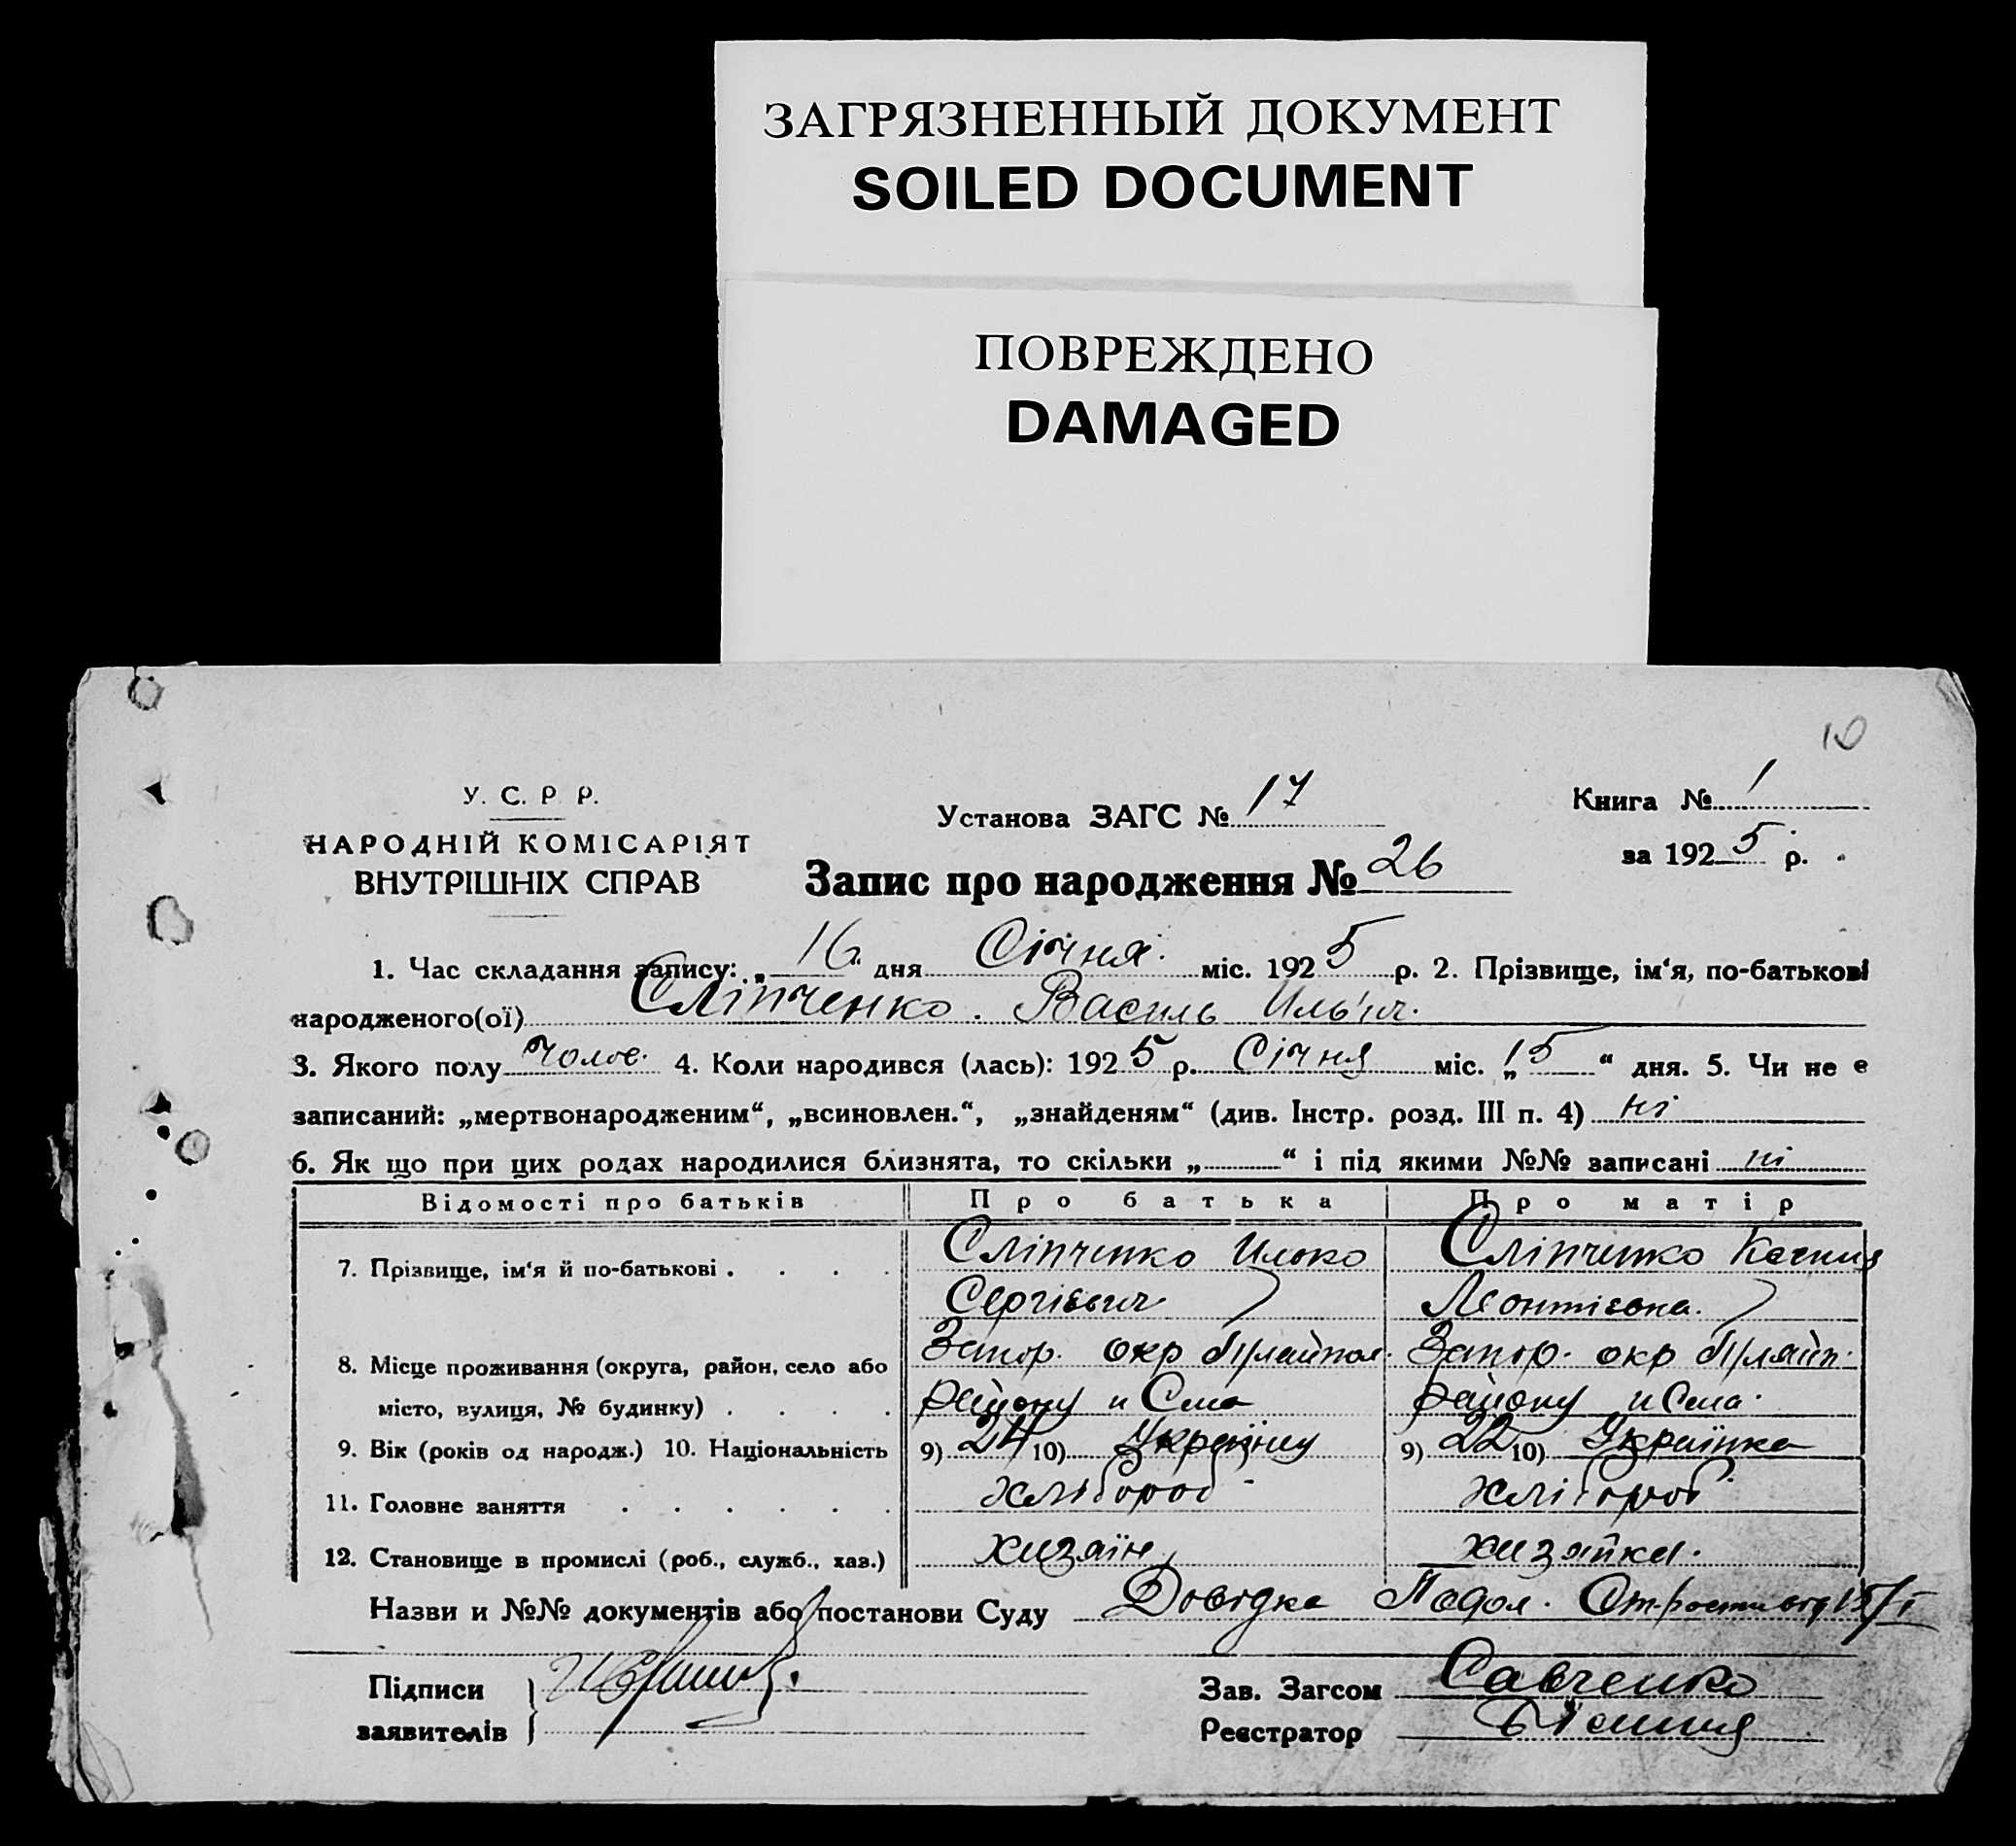 ЗАГРЯЗНЕННЫЙ ДОКУМЕНТ
SOILED DOCUMENT
ПОВРЕЖДЕНО
DAMAGED
10
У. С. Р. Р.
НАРОДНІЙ КОМІСАРІЯТ
ВНУТРІШНІХ СПРАВ
Установа ЗАГС № 17
Запис про народження № 26
Книга № 1
за 1925 р.
1. Час складання запису: „16“ дня Січня міс. 1925 р. 2. Прізвище, ім‘я, по-батькові
народженого(ої) Сліпченко Василь Ильїч.
3. Якого полу чолов. 4. Коли народився (лась): 1925 р. Січня міс. „15“ дня. 5. Чи не є
записаний: „мертвонародженим“, „всиновлен.“, „знайденям“ (див. Інстр. розд. III п. 4) ні
6. Як що при цих родах народилися близнята, то скільки „ “ і під якими №№ записані ні
Відомості про батьків Про батька Про матір
7. Прізвище, ім‘я й по-батькові . . . . Сліпченко Илько Сліпченко
Сергієвич Леонтієвна.
8. Місце проживання (округа, район, село або Запор. окр Запор. окр
місто, вулиця, № будинку) . . . . району и Села району и Села
9. Вік (років од народж.) 10. Національність 9) 24 10) 9) 22 10) Українка
11. Головне заняття . . . . . . хлібороб хлібороб
12. Становище в промислі (роб., служб., хаз.) хазяїн хазяйка.
Назви и №№ документів або постанови Суду Довідка
Підписи
заявителів
Зав. Загсом Савченко
Реєстратор